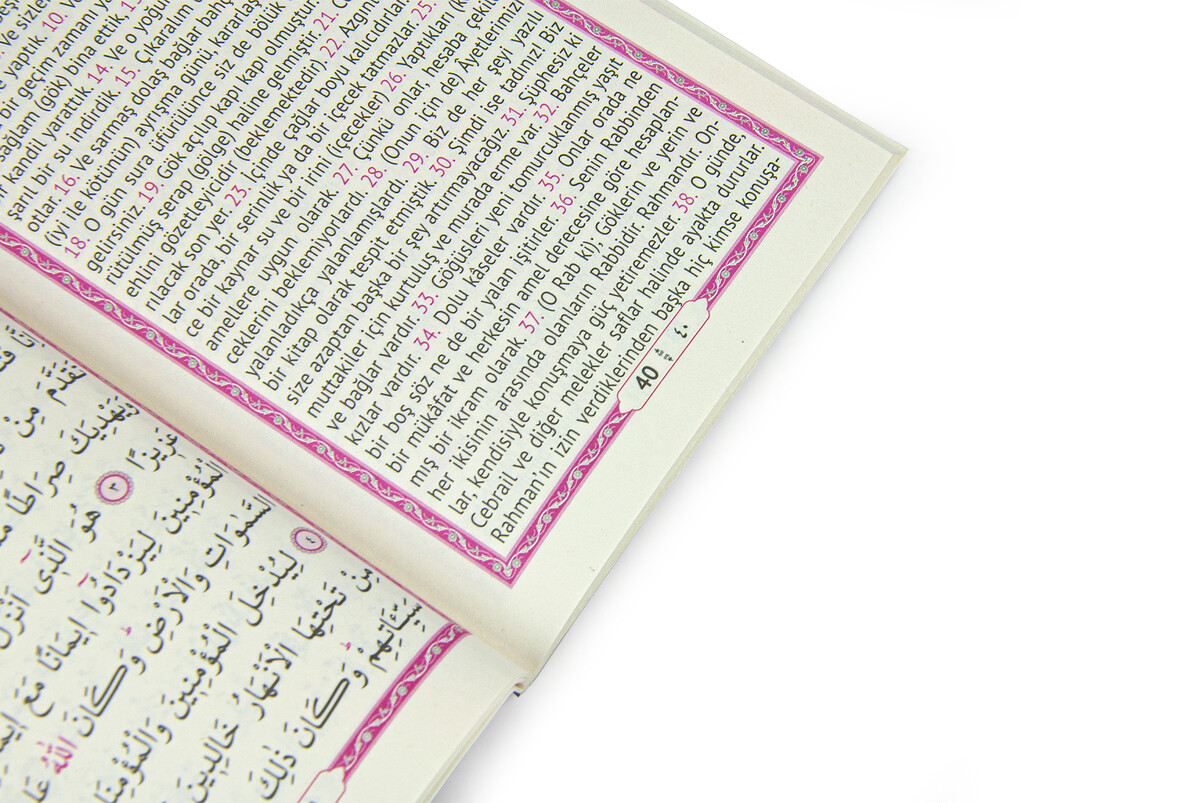 ve sizler
yaptık. 10. Ve
bir geçim zaman
sağlam (gök) bina ettik. 1
kandil yarattık. 14. Ve o yoğu
şarıl bir su indirdik. 15. Çıkaralım d
otlar. 16. Ve sarmaş dolaş bağlar bahç
(iyi ile kötünün) ayrışma günü, kararlaş
18. O gün sura üfürülünce siz de bölük
gelirsiniz. 19. Gök açılıp kapı kapı olmuştur.
rütülmüş serap (gölge) haline gelmiştir. 21. C
ehlini gözetleyicidir (beklemektedir) 22. Azgın
rılacak son yer. 23. İçinde çağlar boyu kalıcıdırlar.
lar orada, bir serinlik ya da bir içecek tatmazlar. 25.
ce bir kaynar su ve bir irini (çecekler) 26. Yaptıkları (k
amellere uygun olarak. 27. Çünkü onlar hesaba çekil
ceklerini beklemiyorlardı. 28. (Onun için de) Âyetlerimizi
yalanladıkça yalanlamışlardı. 29. Biz de her şeyi yazılı
bir kitap olarak tespit etmiştik. 30. Şimdi ise tadınız! Biz
size azaptan başka bir şey artırmayacağız. 31. Şüphesiz ki
muttakiler için kurtuluş ve murada erme var. 32. Bahçeler
ve bağlar vardır. 33. Göğüsleri yeni tomurcuklanmış yaşıt
kızlar vardır. 34. Dolu kâseler vardır. 35. Onlar orada ne
bir boş söz ne de bir yalan işitirler. 36. Senin Rabbinden
bir mükâfat ve herkesin amel derecesine göre hesaplan-
mış bir ikram olarak. 37. (O Rab ki), Göklerin ve yerin ve
her ikisinin arasında olanların Rabbidir. Rahmandır. On-
lar, kendisiyle konuşmaya güç yetiremezler. 38. O günde,
Cebrail ve diğer melekler saflar halinde ayakta dururlar.
Rahman'ın izin verdiklerinden başka hiç kimse konuşa-
40 ٤٠
تَقَدَّمَ مِنْ
وَيَهْدِيَكَ صِرَاطًا
عَزِيزًا ٣ هُوَ الَّذِى اَنْزَلَ
الْمُؤْمِنِينَ لِيَزْدَادُوا اِيمَانًا مَعَ
السَّمٰوَاتِ وَالْاَرْضِ وَكَانَ اللّٰهُ
٤ لِيُدْخِلَ الْمُؤْمِنِينَ
مِنْ تَحْتِهَا الْاَنْهَارُ خَالِدِينَ
سَيِّـَٔاتِهِمْ وَكَانَ ذٰلِكَ